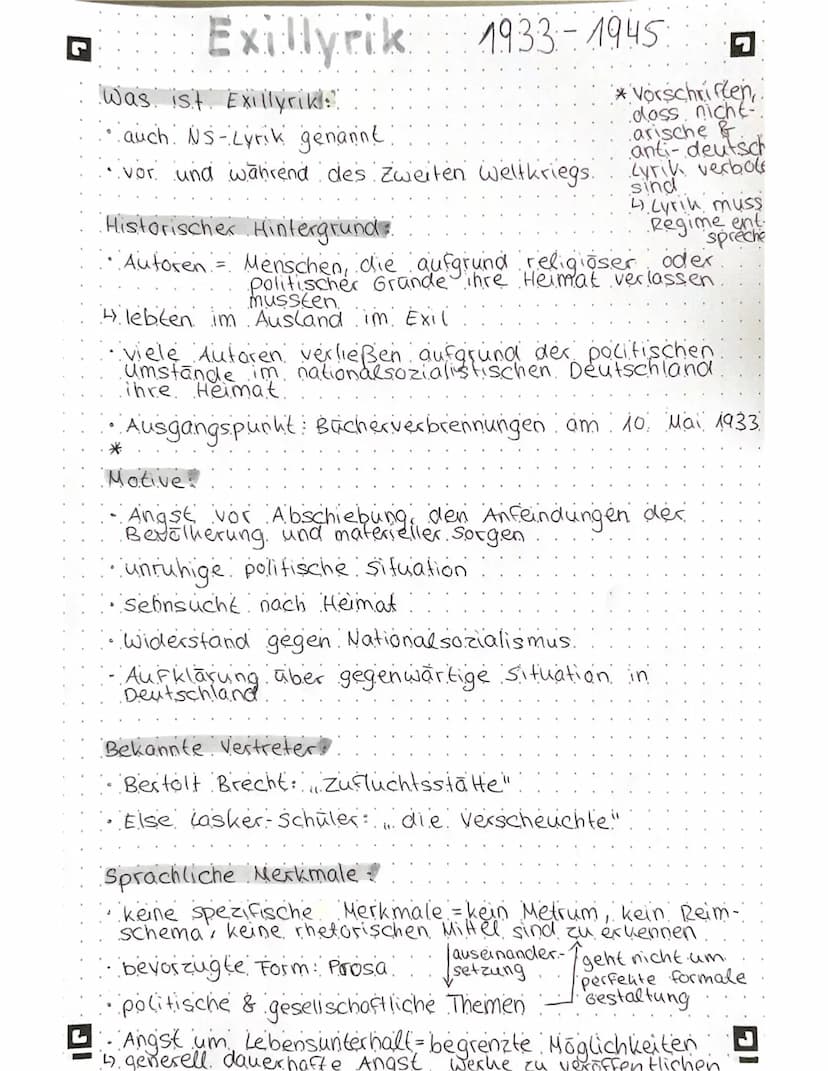 Exillyrik 1933-1945
Was ist Exillyrik:
• auch NS-Lyrik genannt
• vor und während des Zweiten Weltkriegs
* Vorschriften,
dass nicht-
arische &
anti-deutsch
Lyrik verbote
sind
↳ Lyrik muss
Regime ent-
spreche
Historischer Hintergrund:
• Autoren = Menschen, die aufgrund religiöser oder
politischer Gründe ihre Heimat verlassen
mussten
↳ lebten im Ausland im Exil
• viele Autoren verließen aufgrund der politischen
Umstände im nationalsozialistischen Deutschland
ihre Heimat
• Ausgangspunkt: Bücherverbrennungen am 10. Mai 1933
*
Motive:
• Angst vor Abschiebung, den Anfeindungen der
Bevölkerung und materieller Sorgen
• unruhige politische Situation
• Sehnsucht nach Heimat
• Widerstand gegen Nationalsozialismus
• Aufklärung über gegenwärtige Situation in
Deutschland
Bekannte Vertreter:
• Bertolt Brecht: „Zufluchtsstätte"
• Else Lasker-Schüler: „die Verscheuchte"
Sprachliche Merkmale:
• keine spezifische Merkmale = kein Metrum, kein Reim-
schema, keine rhetorischen Mittel sind zu erkennen
• bevorzugte Form: Prosa
↓ auseinander-
setzung
↑ geht nicht um
perfekte formale
Gestaltung
• politische & gesellschaftliche Themen
• Angst um Lebensunterhalt = begrenzte Möglichkeiten
↳ generell dauerhafte Angst Werke zu veröffentlichen